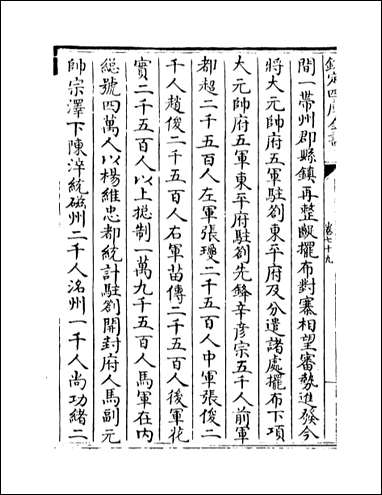 欽定四庫全書
卷七十九
間一帶州郡縣鎮再整齪擺布對寨相望審勢進發今
將大元帥府五軍駐劄東平府及分遣諸處擺布下項
大元帥府五軍東平府駐劄先鋒辛彦宗五千人前軍
都超二千五百人左軍張瓊二千五百人中軍張俊二
千人趙俊二千五百人右軍苗傳二千五百人後軍花
實二千五百人以上摠制一萬九千五百人馬軍在内
總號四萬人以楊維忠都統計駐劄開封府人馬副元
帥宗澤下陳淬統磁州二千人洺州一千人尚功緒二